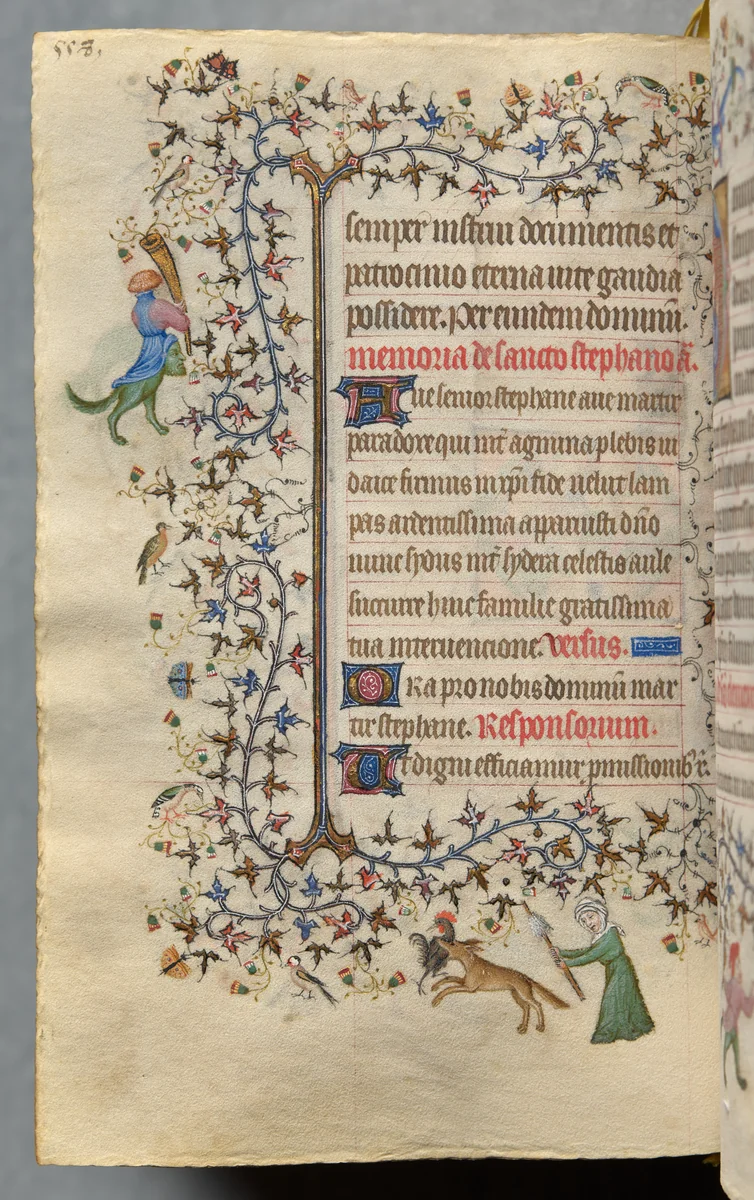 558.
semper instrui documentis et
patrocinio eterna uite gaudia
possidere. Per eundem dominū.
memoria de sancto stephano ā.
Aue senior stephane aue martir
paradoxe qui int̄ agmina plebis iu
daice firmus in xp̄i fide uelut lam
pas ardentissima apparuisti dn̄o
nunc sydus int̄ sydera celestis aule
succurre huic familie gratissima
tua interuencione. versus.
Ora pro nobis dominū mar
tir stephane. Responsorium.
Ut digni efficiamur